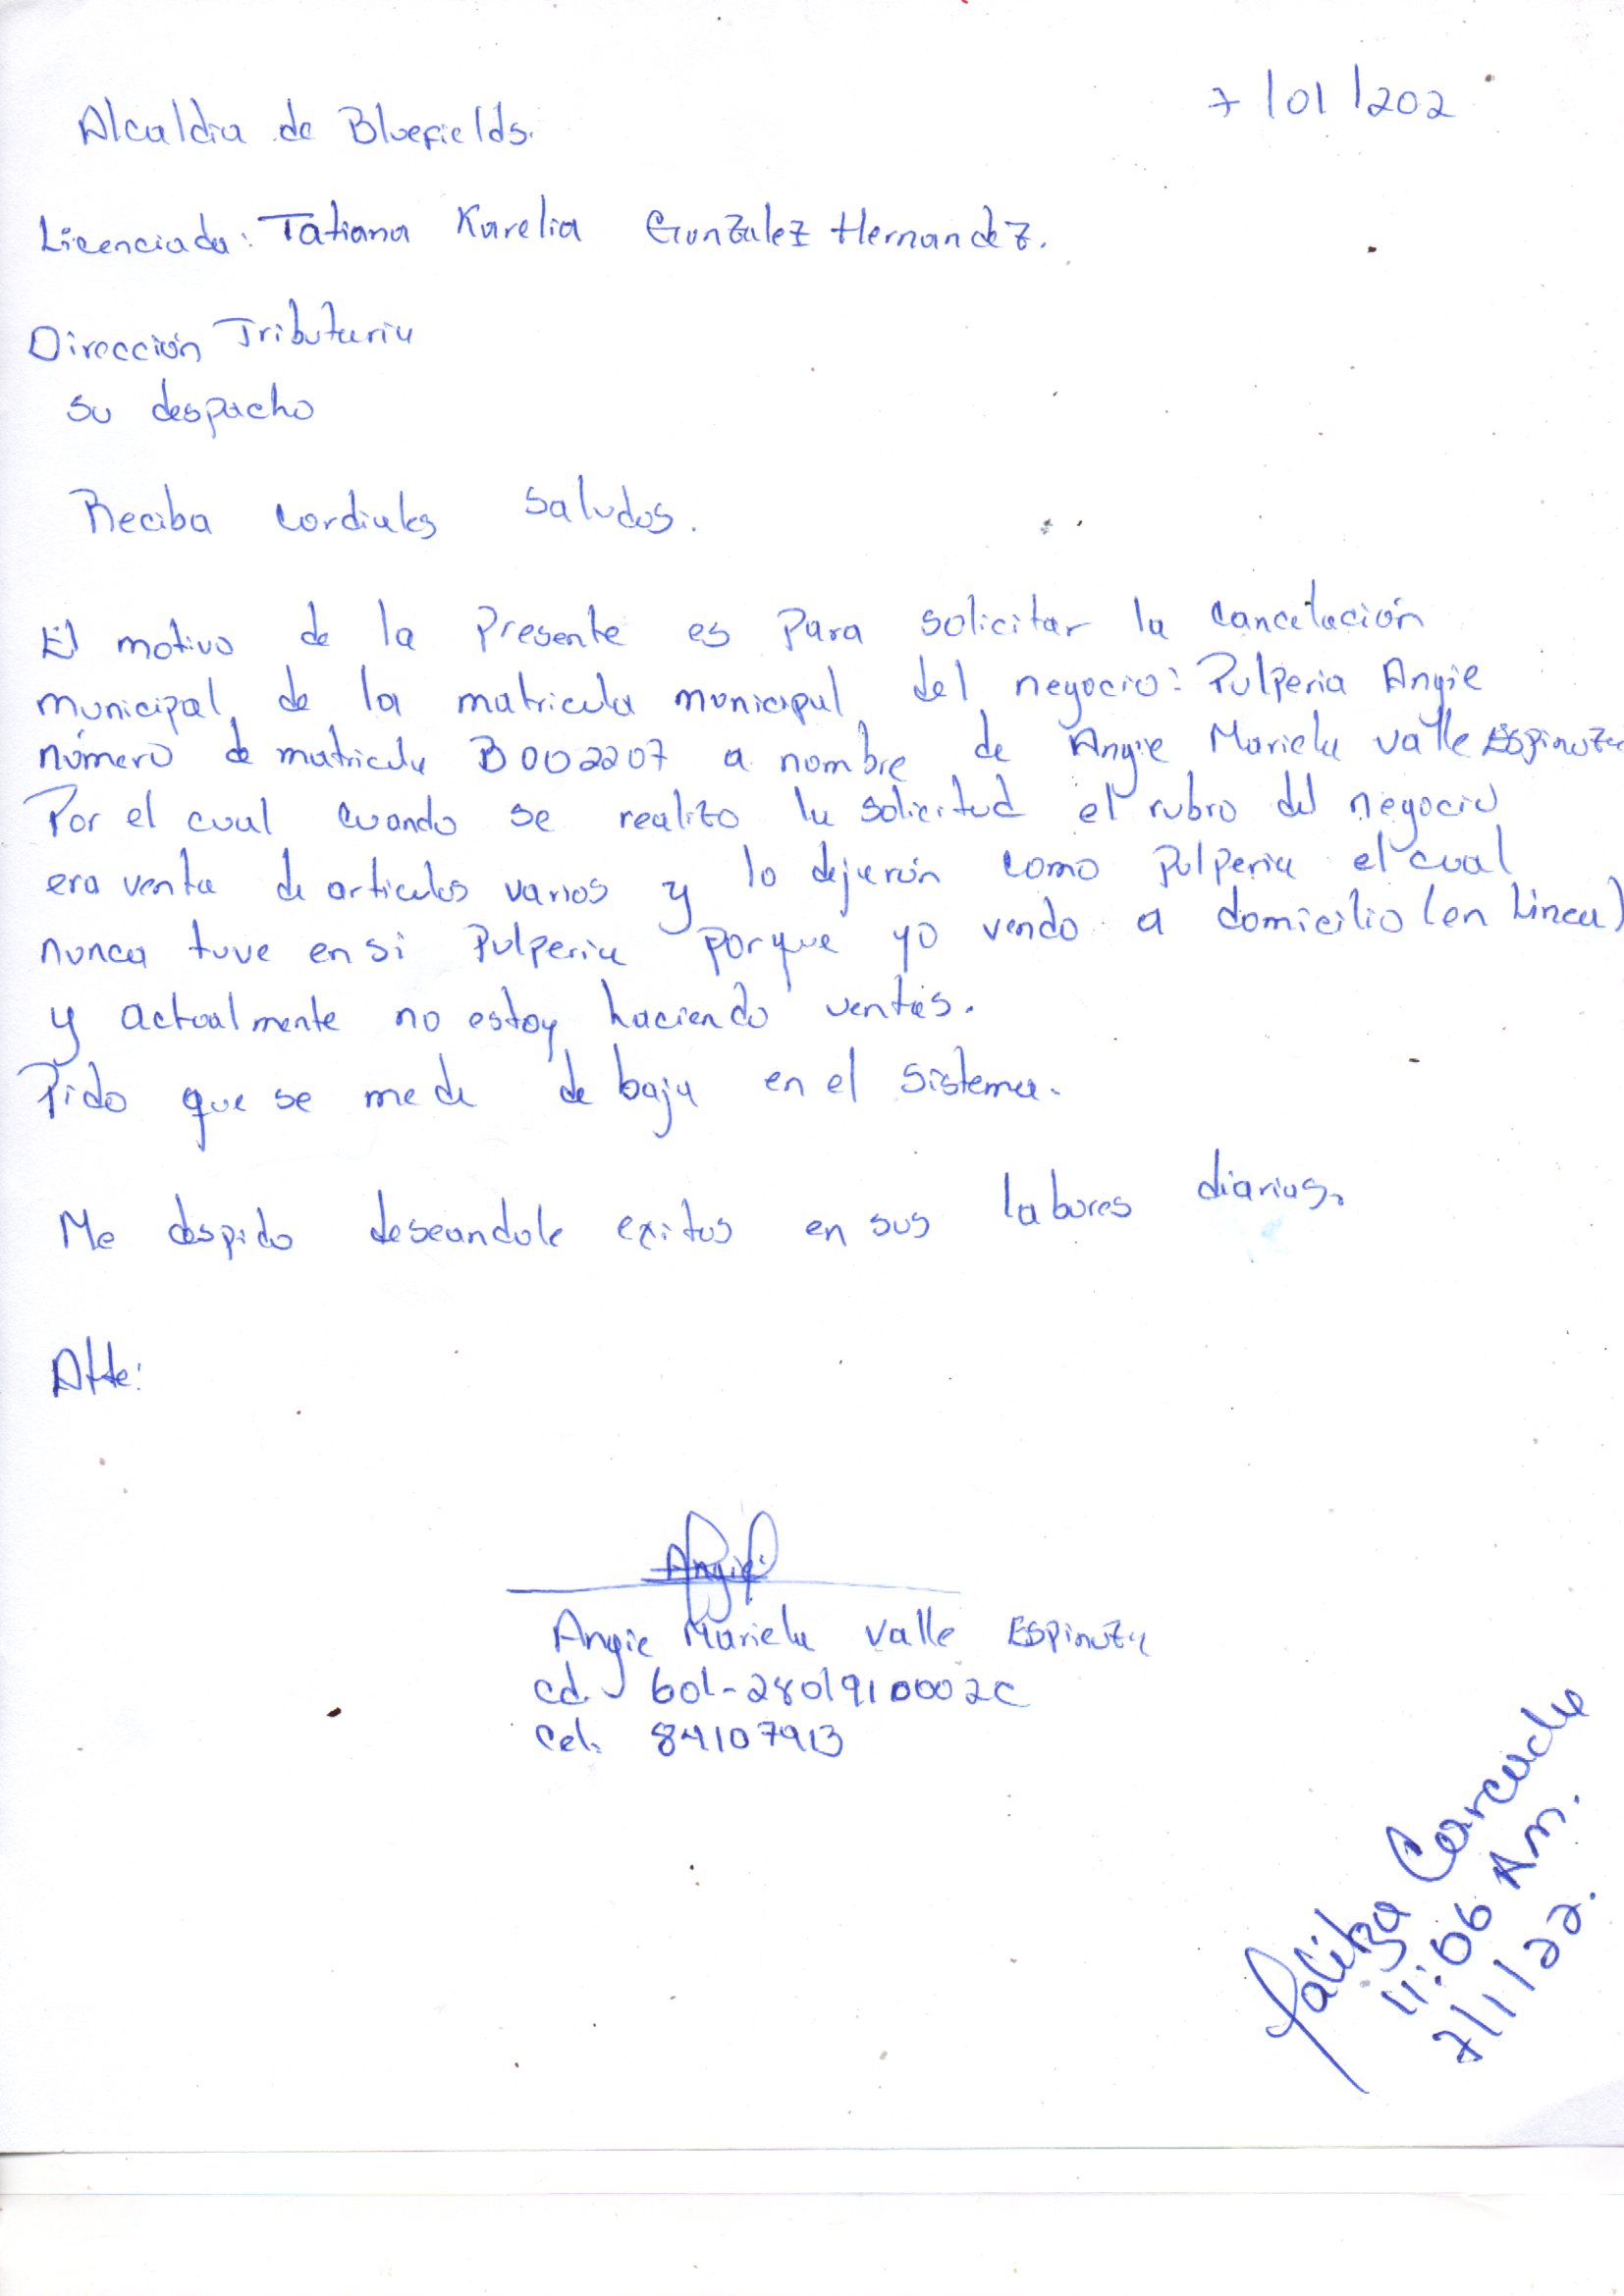 7/01/202
Alcaldia de Bluefields.
Licenciada: Tatiana Karelia Gonzalez Hernandez.
Dirección Tributaria
su despacho
Reciba cordiales saludos.
El motivo de la Presente es Para solicitar la cancelación
municipal, de la matricula municipal del negocio: Pulperia Angie
número de matricula B002207 a nombre de Angie Mariela Valle Espinoza
Por el cual cuando se realizo la solicitud el rubro del negocio
era venta de articulos varios y lo dejarón como pulperia el cual
nunca tuve en si Pulperia porque yo vendo a domicilio (en Linea)
y actualmente no estoy haciendo ventas.
Pido que se me de de baja en el sistema.
Me despido deseandole exitos en sus labores diarias.
Atte:
Angie
Angie Mariela Valle Espinoza
cd. 601-2801910002C
Cel. 84107913
11:06 Am.
7/1/22.